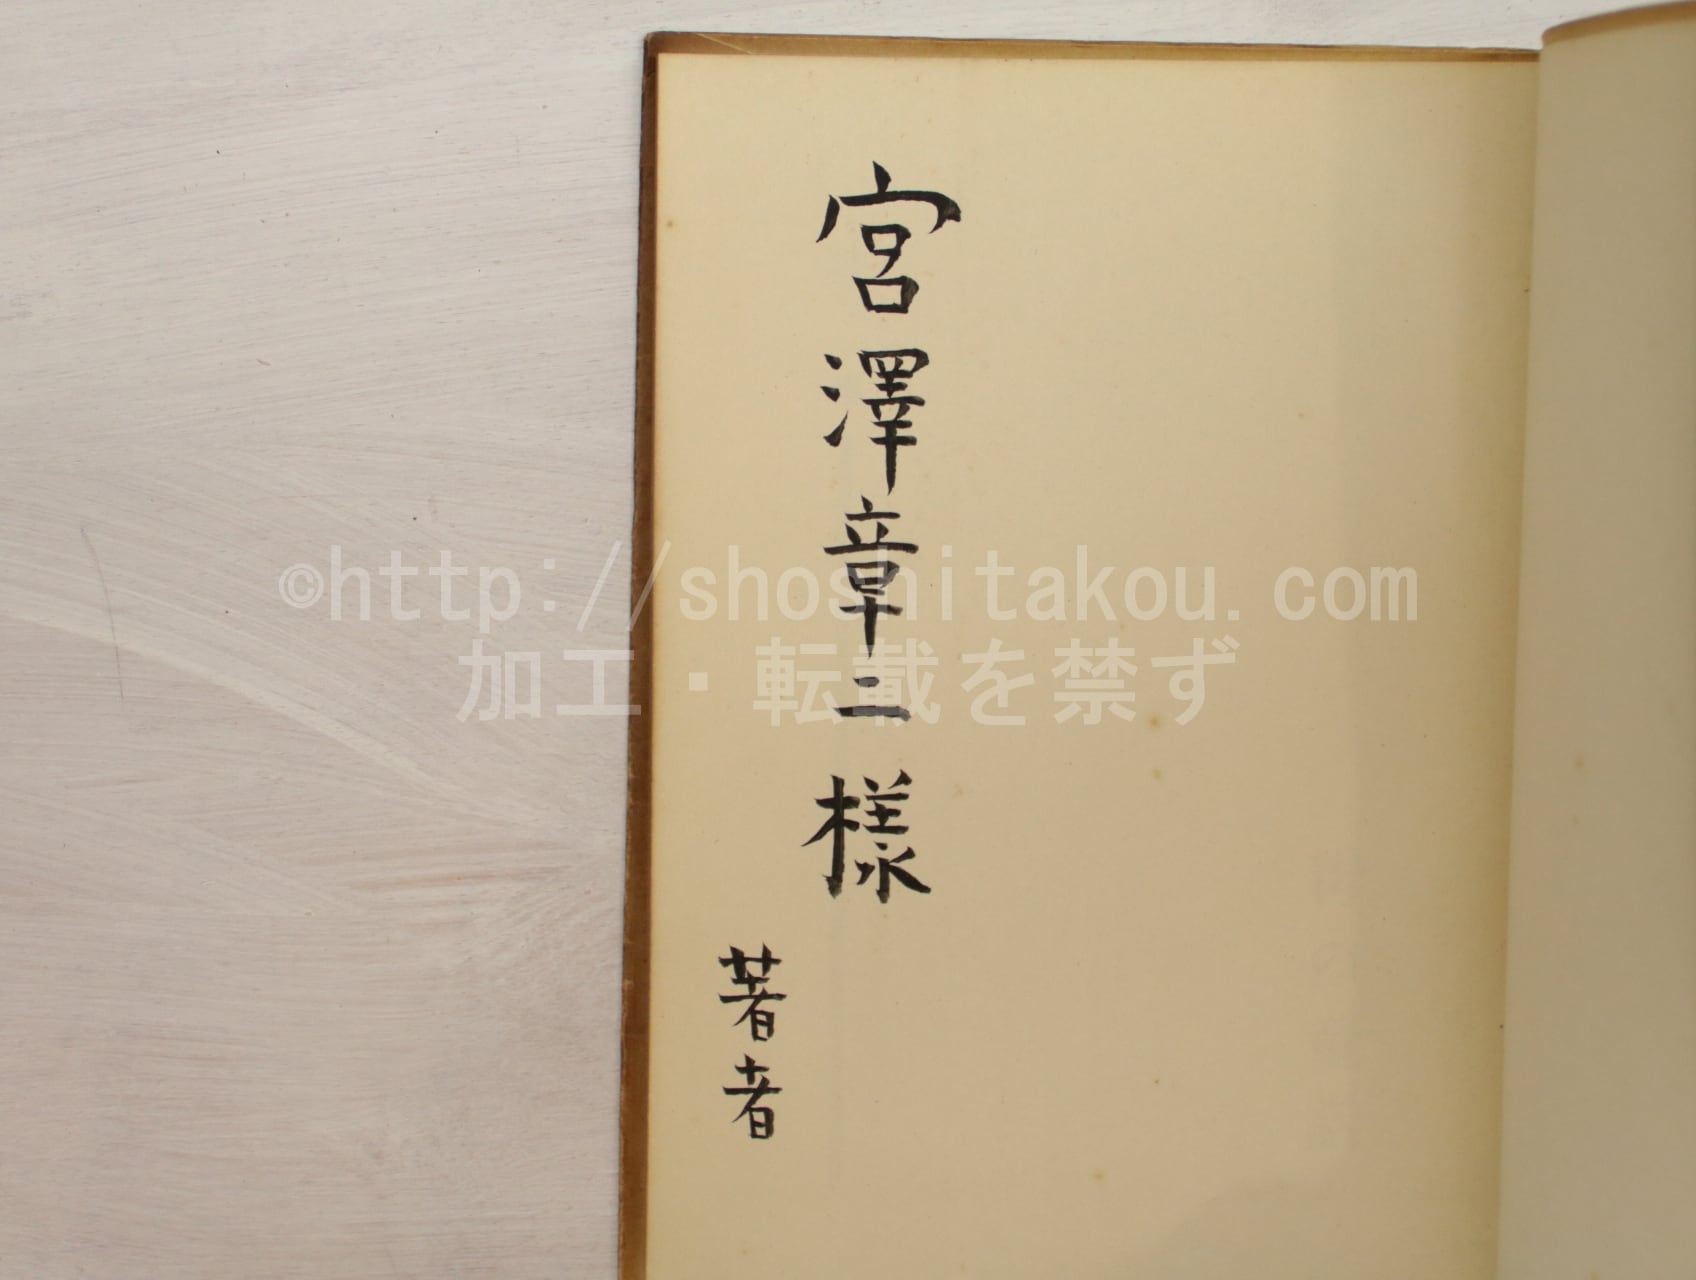 宮澤章二様
著者
©http://shoshitakou.com
加工・転載を禁ず